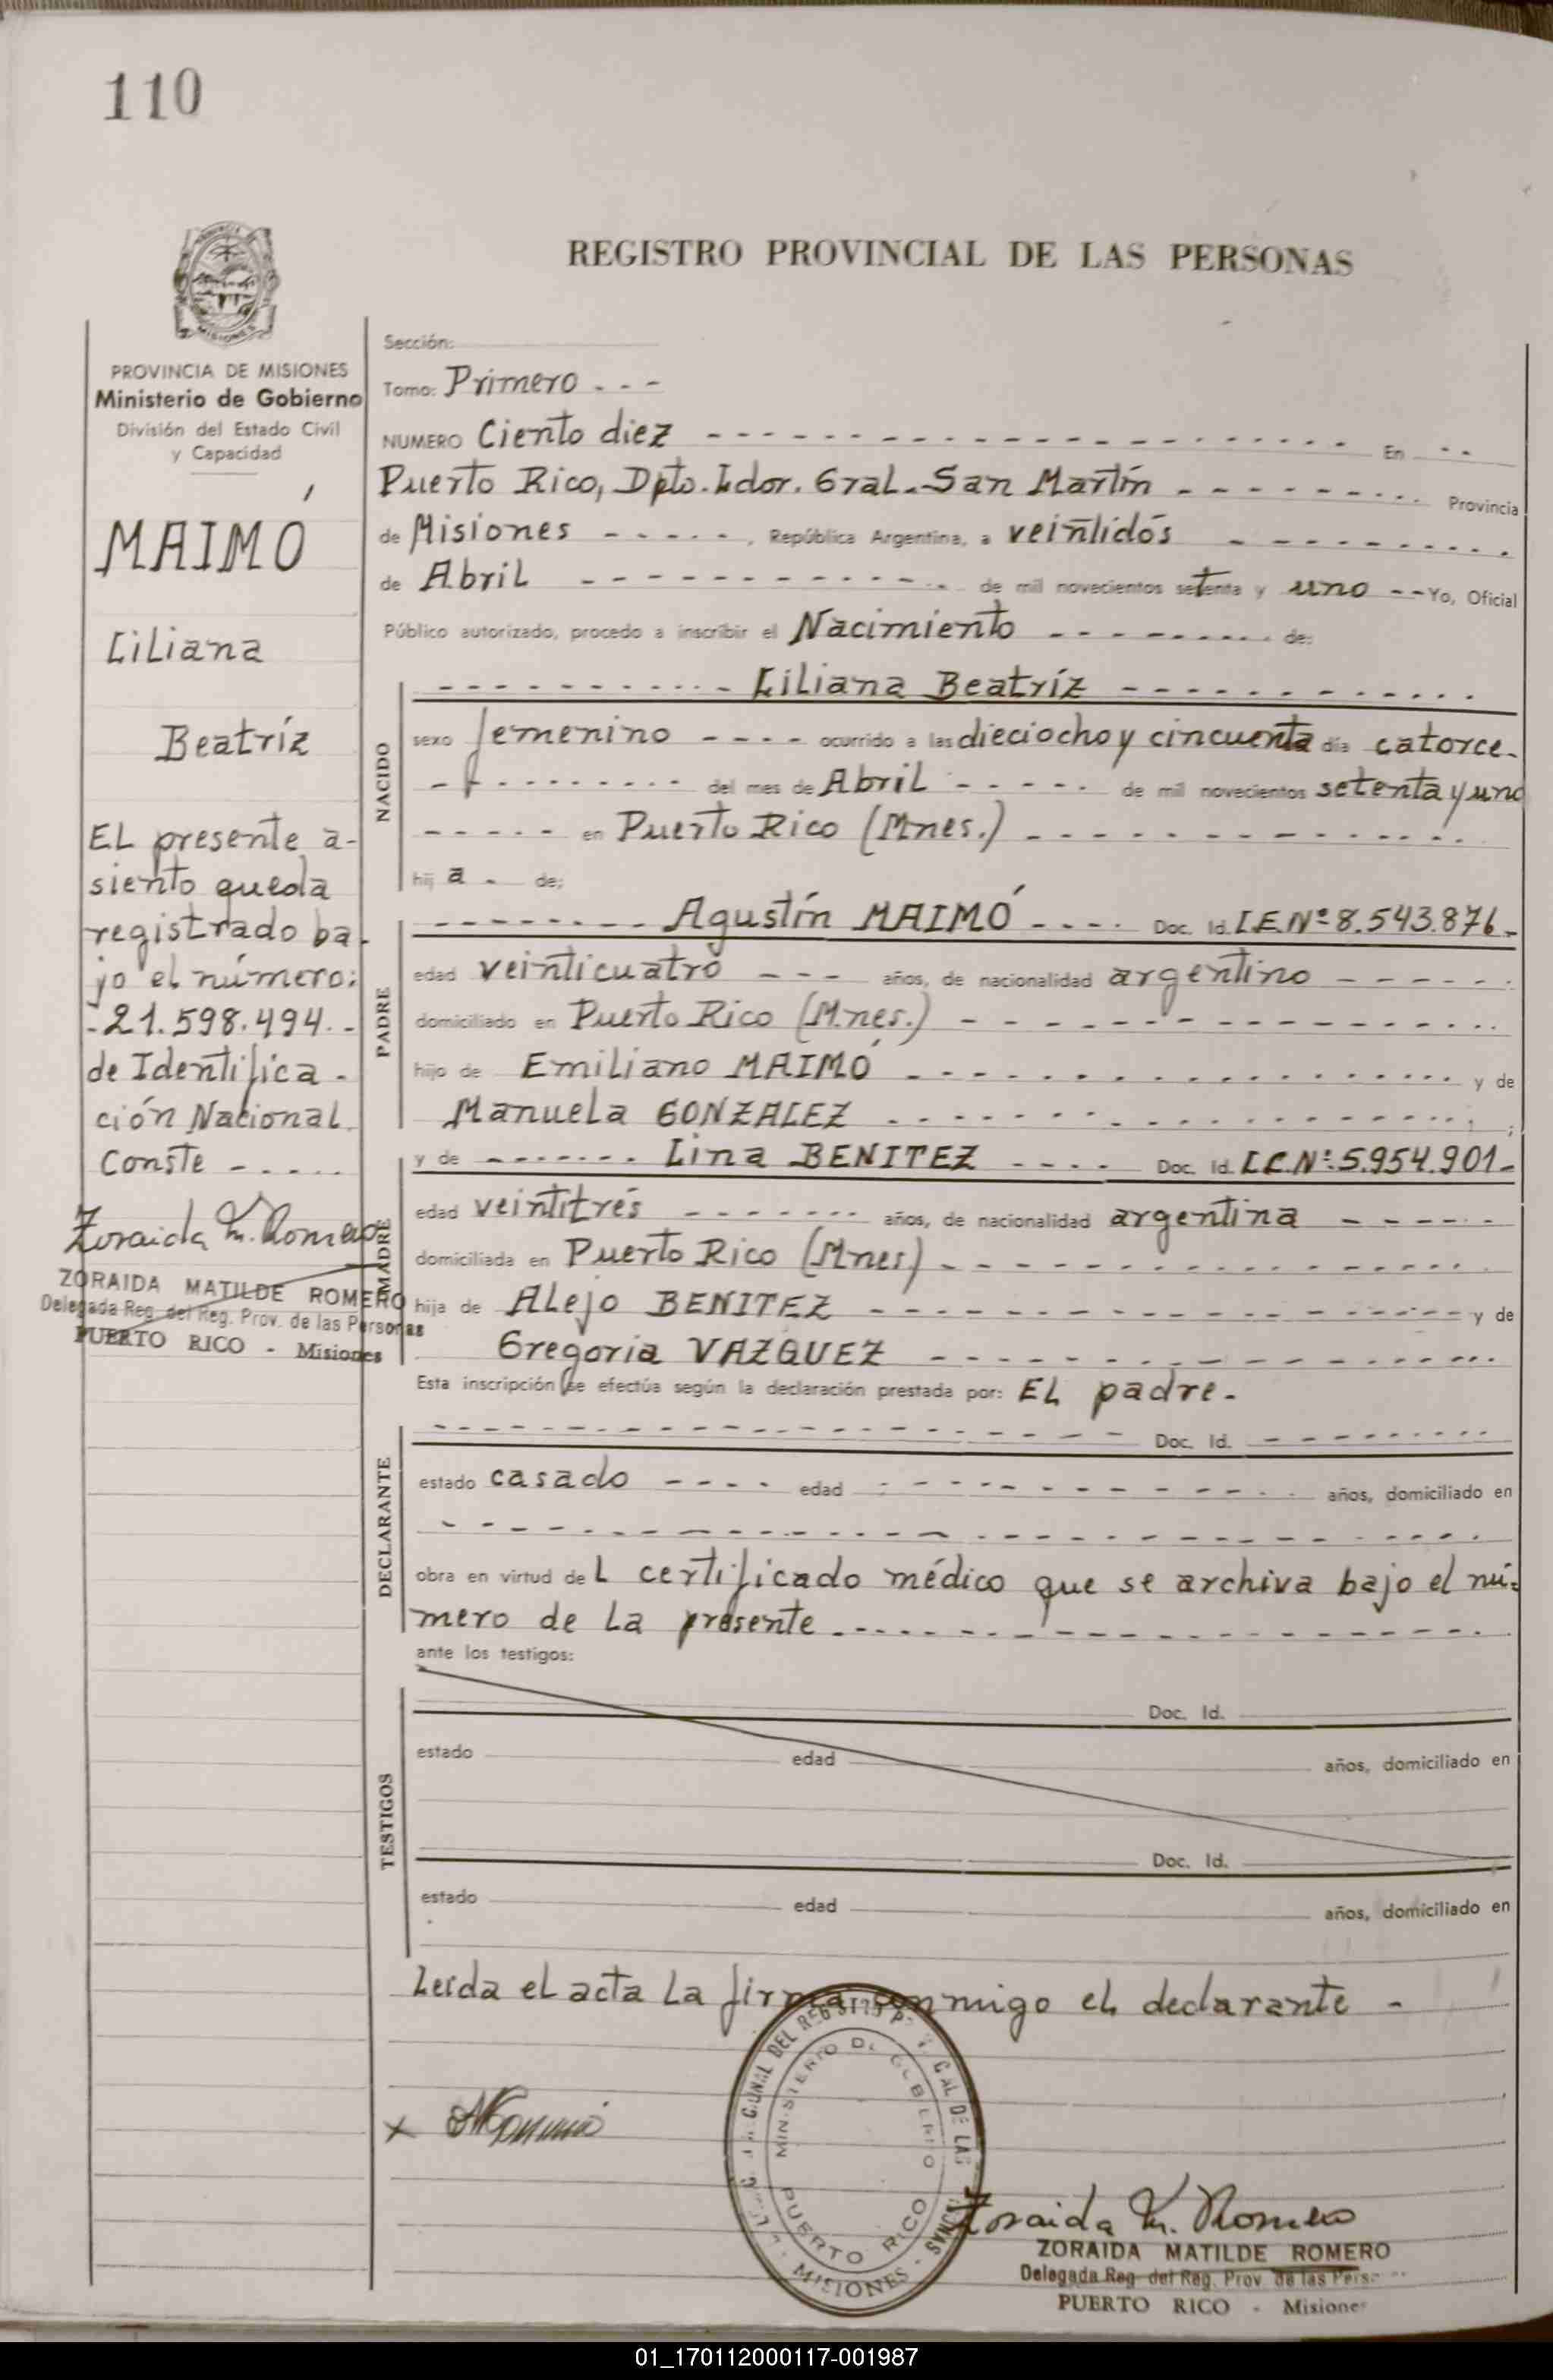 110
REGISTRO PROVINCIAL DE LAS PERSONAS
PROVINCIA DE MISIONES
Ministerio de Gobierno
División del Estado Civil
y Capacidad
MAIMÓ
Liliana
Beatríz
EL presente a-
siento queda
registrado ba-
jo el número:
-21.598.494.-
de Identifica-
ción Nacional.
Conste - - - - -
Zoraida M. Romero
ZORAIDA MATILDE ROMERO
Delegada Reg. del Reg. Prov. de las Personas
PUERTO RICO - Misiones
Sección:
Tomo: Primero - - -
NUMERO Ciento diez - - - En - -
Puerto Rico, Dpto. Ldor. Gral. San Martín - - - Provincia
de Misiones - - - - -, República Argentina, a veintidós - - -
de Abril - - - de mil novecientos setenta y uno - - Yo, Oficial
Público autorizado, procedo a inscribir el Nacimiento - - - de:
NACIDO
- - - Liliana Beatríz - - -
sexo femenino - - - - ocurrido a las dieciocho y cincuenta día catorce-
- - - del mes de Abril - - - - - de mil novecientos setenta y uno
- - - - - en Puerto Rico (Mnes.) - - -
hij a - de:
PADRE
- - - Agustín MAIMÓ - - - - Doc. Id. L.E.Nº 8.543.876-
edad veinticuatro - - - años, de nacionalidad argentino - - -
domiciliado en Puerto Rico (Mnes.) - - -
hijo de Emiliano MAIMÓ - - - y de
Manuela GONZALEZ - - - ;
MADRE
y de - - - Lina BENITEZ - - - - Doc. Id. L.C.Nº: 5.954.901-
edad veintitrés - - - años, de nacionalidad argentina - - - - -
domiciliada en Puerto Rico (Mnes) - - -
hija de Alejo BENITEZ - - - y de
Gregoria VAZQUEZ - - -
Esta inscripción se efectúa según la declaración prestada por: EL padre.
DECLARANTE
- - - Doc. Id. - - -
estado casado - - - - edad - - - años, domiciliado en
- - -
obra en virtud de L certificado médico que se archiva bajo el nú-
mero de La presente - - -
ante los testigos:
TESTIGOS
Doc. Id.
estado edad años, domiciliado en
Doc. Id.
estado edad años, domiciliado en
Leída el acta La firma conmigo el declarante -
x
MINISTERIO DE GOBIERNO
PUERTO RICO
MISIONES
Zoraida M. Romero
ZORAIDA MATILDE ROMERO
Delegada Reg. del Reg. Prov. de las Pers
PUERTO RICO - Misiones
01_170112000117-001987